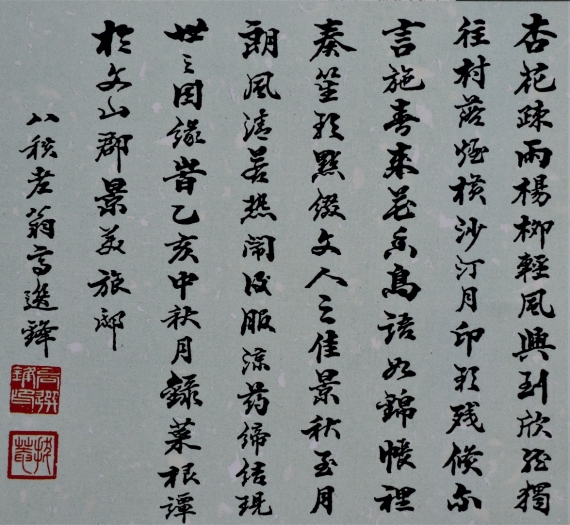 杏花疎雨楊柳輕風興到欣然獨
往村落煙橫沙汀月印歌残倏尔
言旋春來花香鳥語如錦帳裡
奏笙歌點綴文人之佳景秋至月
朗風清若熱鬧後服涼药締結現
世之因緣昔乙亥中秋月錄菜根譚
於文山郡景美旅邸
八秩老翁高選鋒
高選鋒印